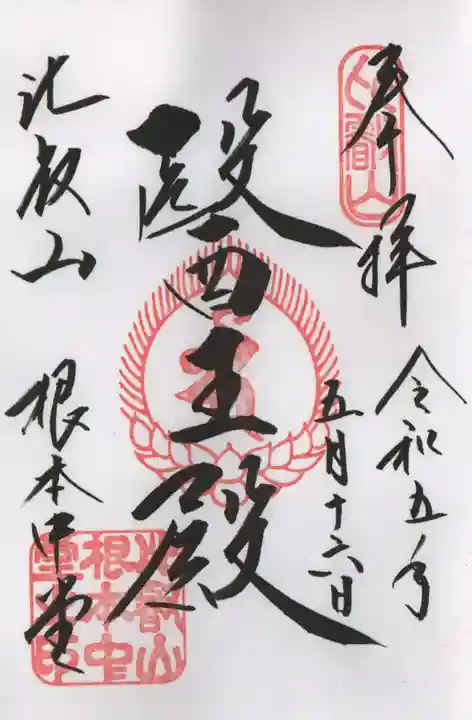 奉拝
比叡山
令和五年
五月十六日
醫王殿
比叡山
根本中堂
比叡山
根本中
堂印